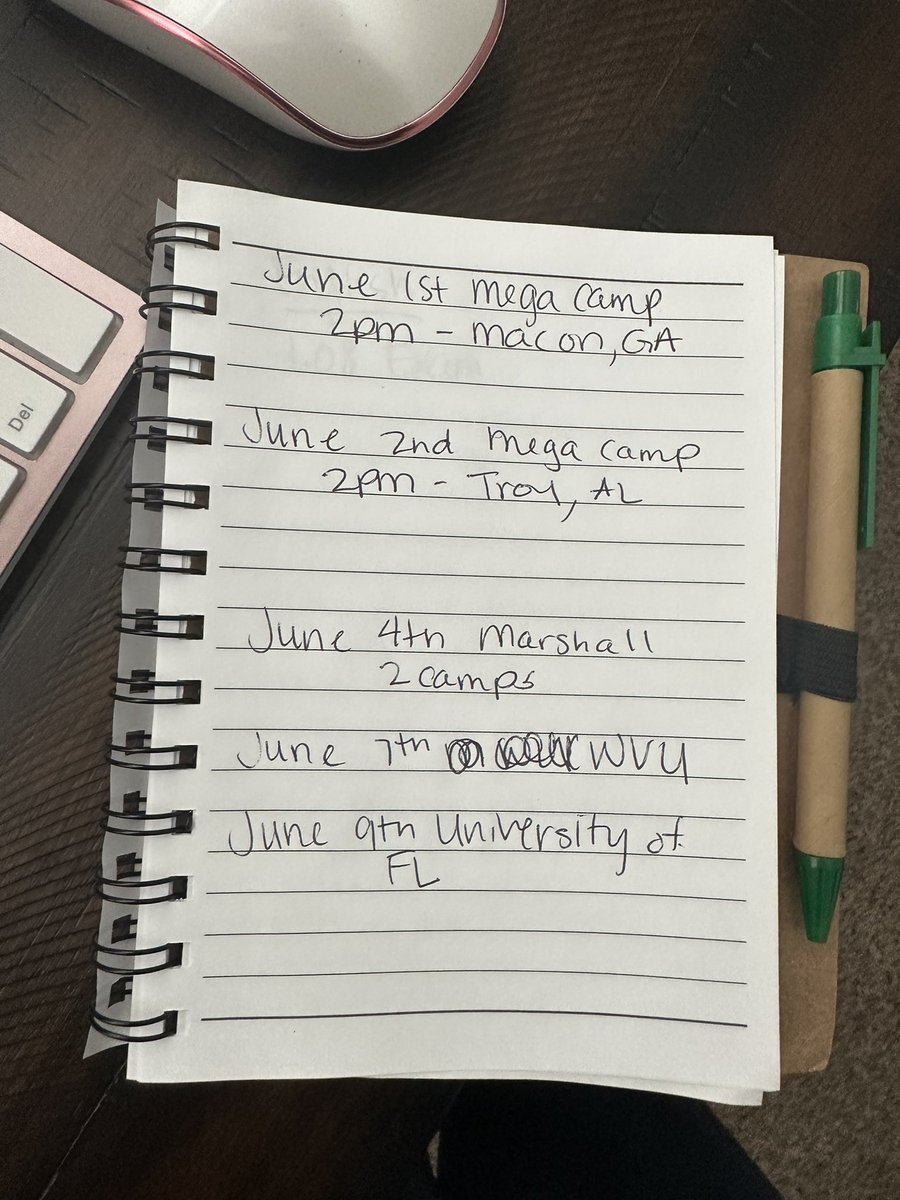 June 1st mega camp
2pm - macon, GA
June 2nd mega camp
2pm - Troy, AL
June 4th marshall
2 camps
June 7th WVU
June 9th University of
FL
Del